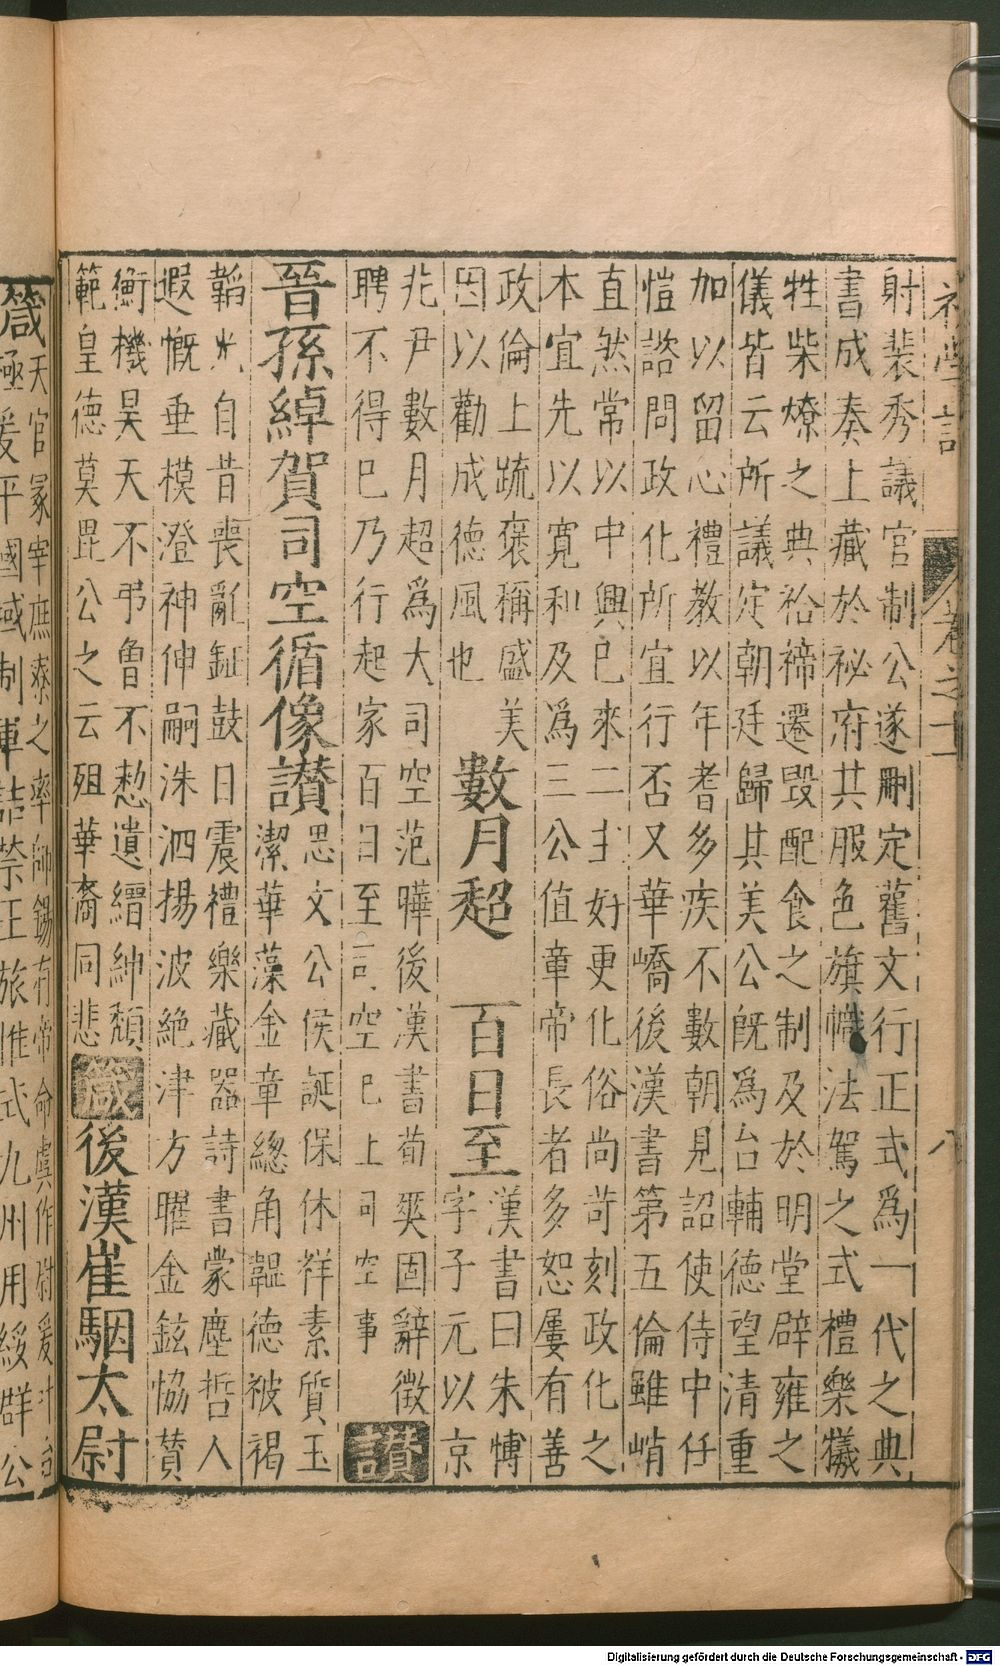 初學記 卷之十一 八
射裴秀議官制公遂刪定舊文行正式爲一代之典
書成奏上藏於祕府其服色旗幟法駕之式禮樂犧
牲柴燎之典祫禘遷毀配食之制及於明堂辟雍之
儀皆云所議定朝廷歸其美公旣爲台輔德望清重
加以留心禮教以年耆多疾不數朝見詔使侍中任
愷諮問政化所宜行否又華嶠後漢書第五倫雖峭
直然常以中興已來二主好更化俗尚苛刻政化之
本宜先以寬和及爲三公值章帝長者多恕屢有善
政倫上疏襃稱盛美
因以勸成德風也
數月超 百日至
漢書曰朱博
字子元以京
兆尹數月超爲大司空范曄後漢書荀爽固辭徵
聘不得已乃行起家百日至司空已上司空事
讃
晉孫綽賀司空循像讃
思文公侯誕保休祥素質玉
潔華藻金章緫角韞德被褐
韜光自昔喪亂鉦鼓日震禮樂藏器詩書蒙塵哲人
遐慨垂模澄神伸嗣洙泗揚波絶津方曜金鉉恊賛
衡機昊天不弔魯不憗遺縉紳頽
範皇德莫毘公之云殂華裔同悲
箴
後漢崔駰太尉
箴
天官冢宰庶寮之率師錫有帝命虞作尉爰叶台
極爰平國域制軍詰禁王旅惟式九州用綏群公
Digitalisierung gefördert durch die Deutsche Forschungsgemeinschaft - DFG